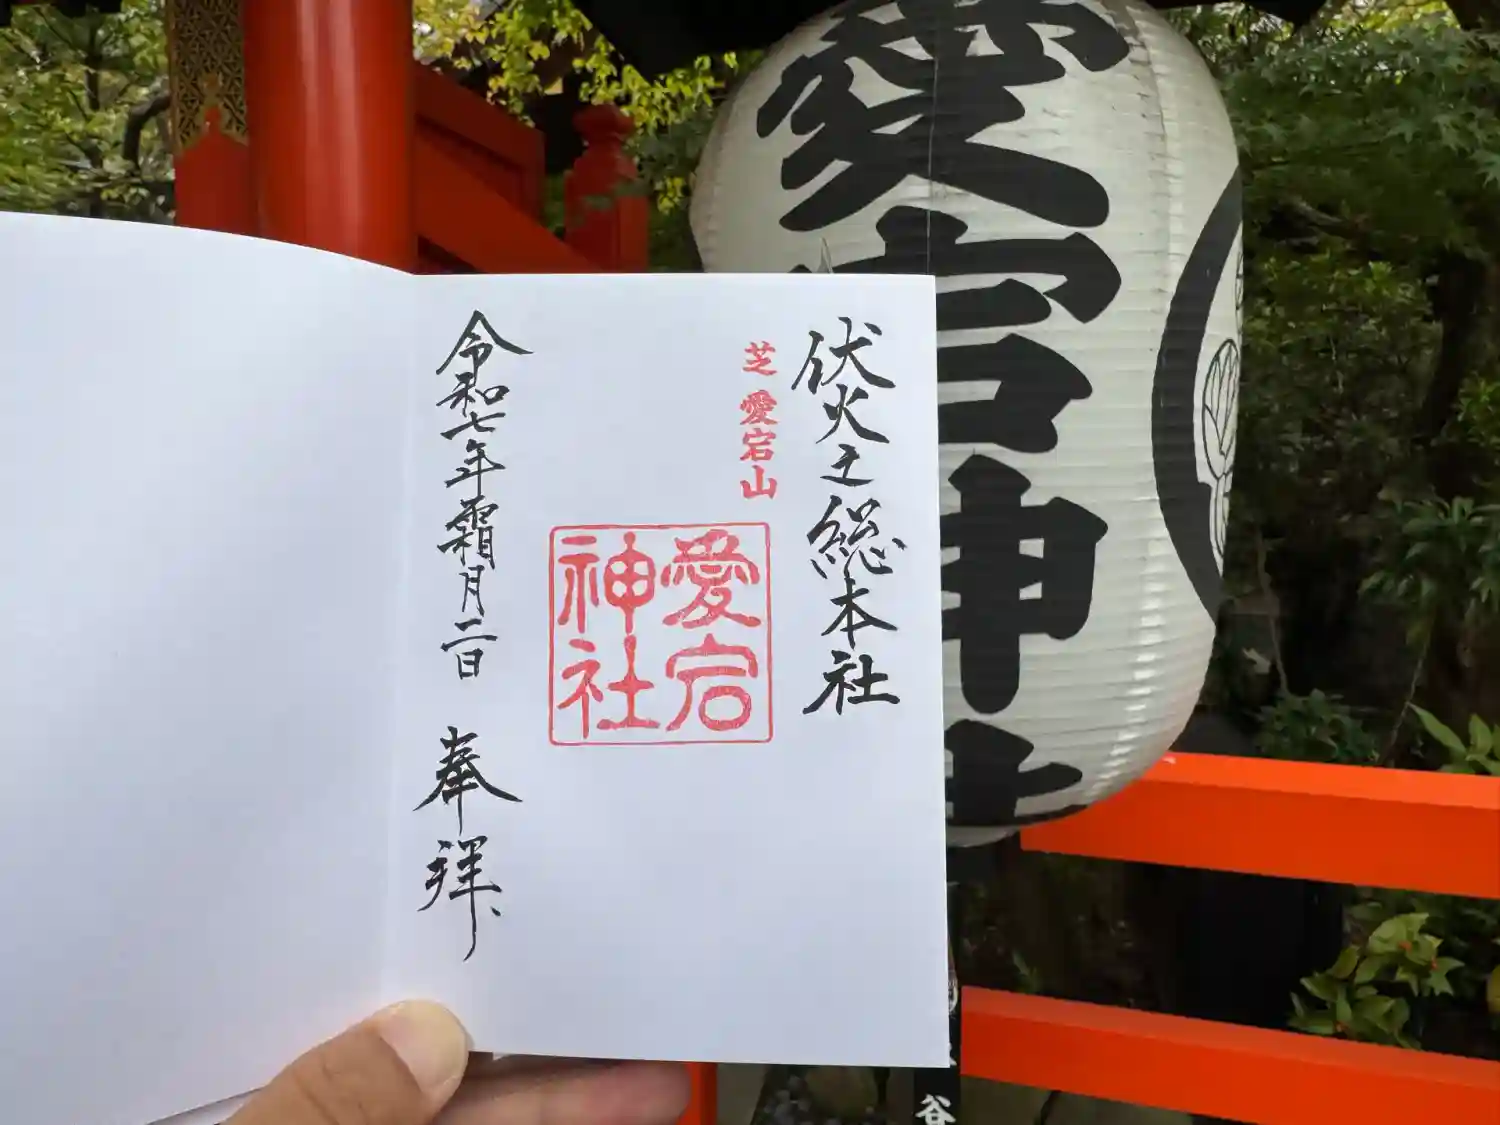 伏火之総本社
芝 愛宕山
愛宕
神社
令和七年霜月二日 奉拝
愛宕神社
谷